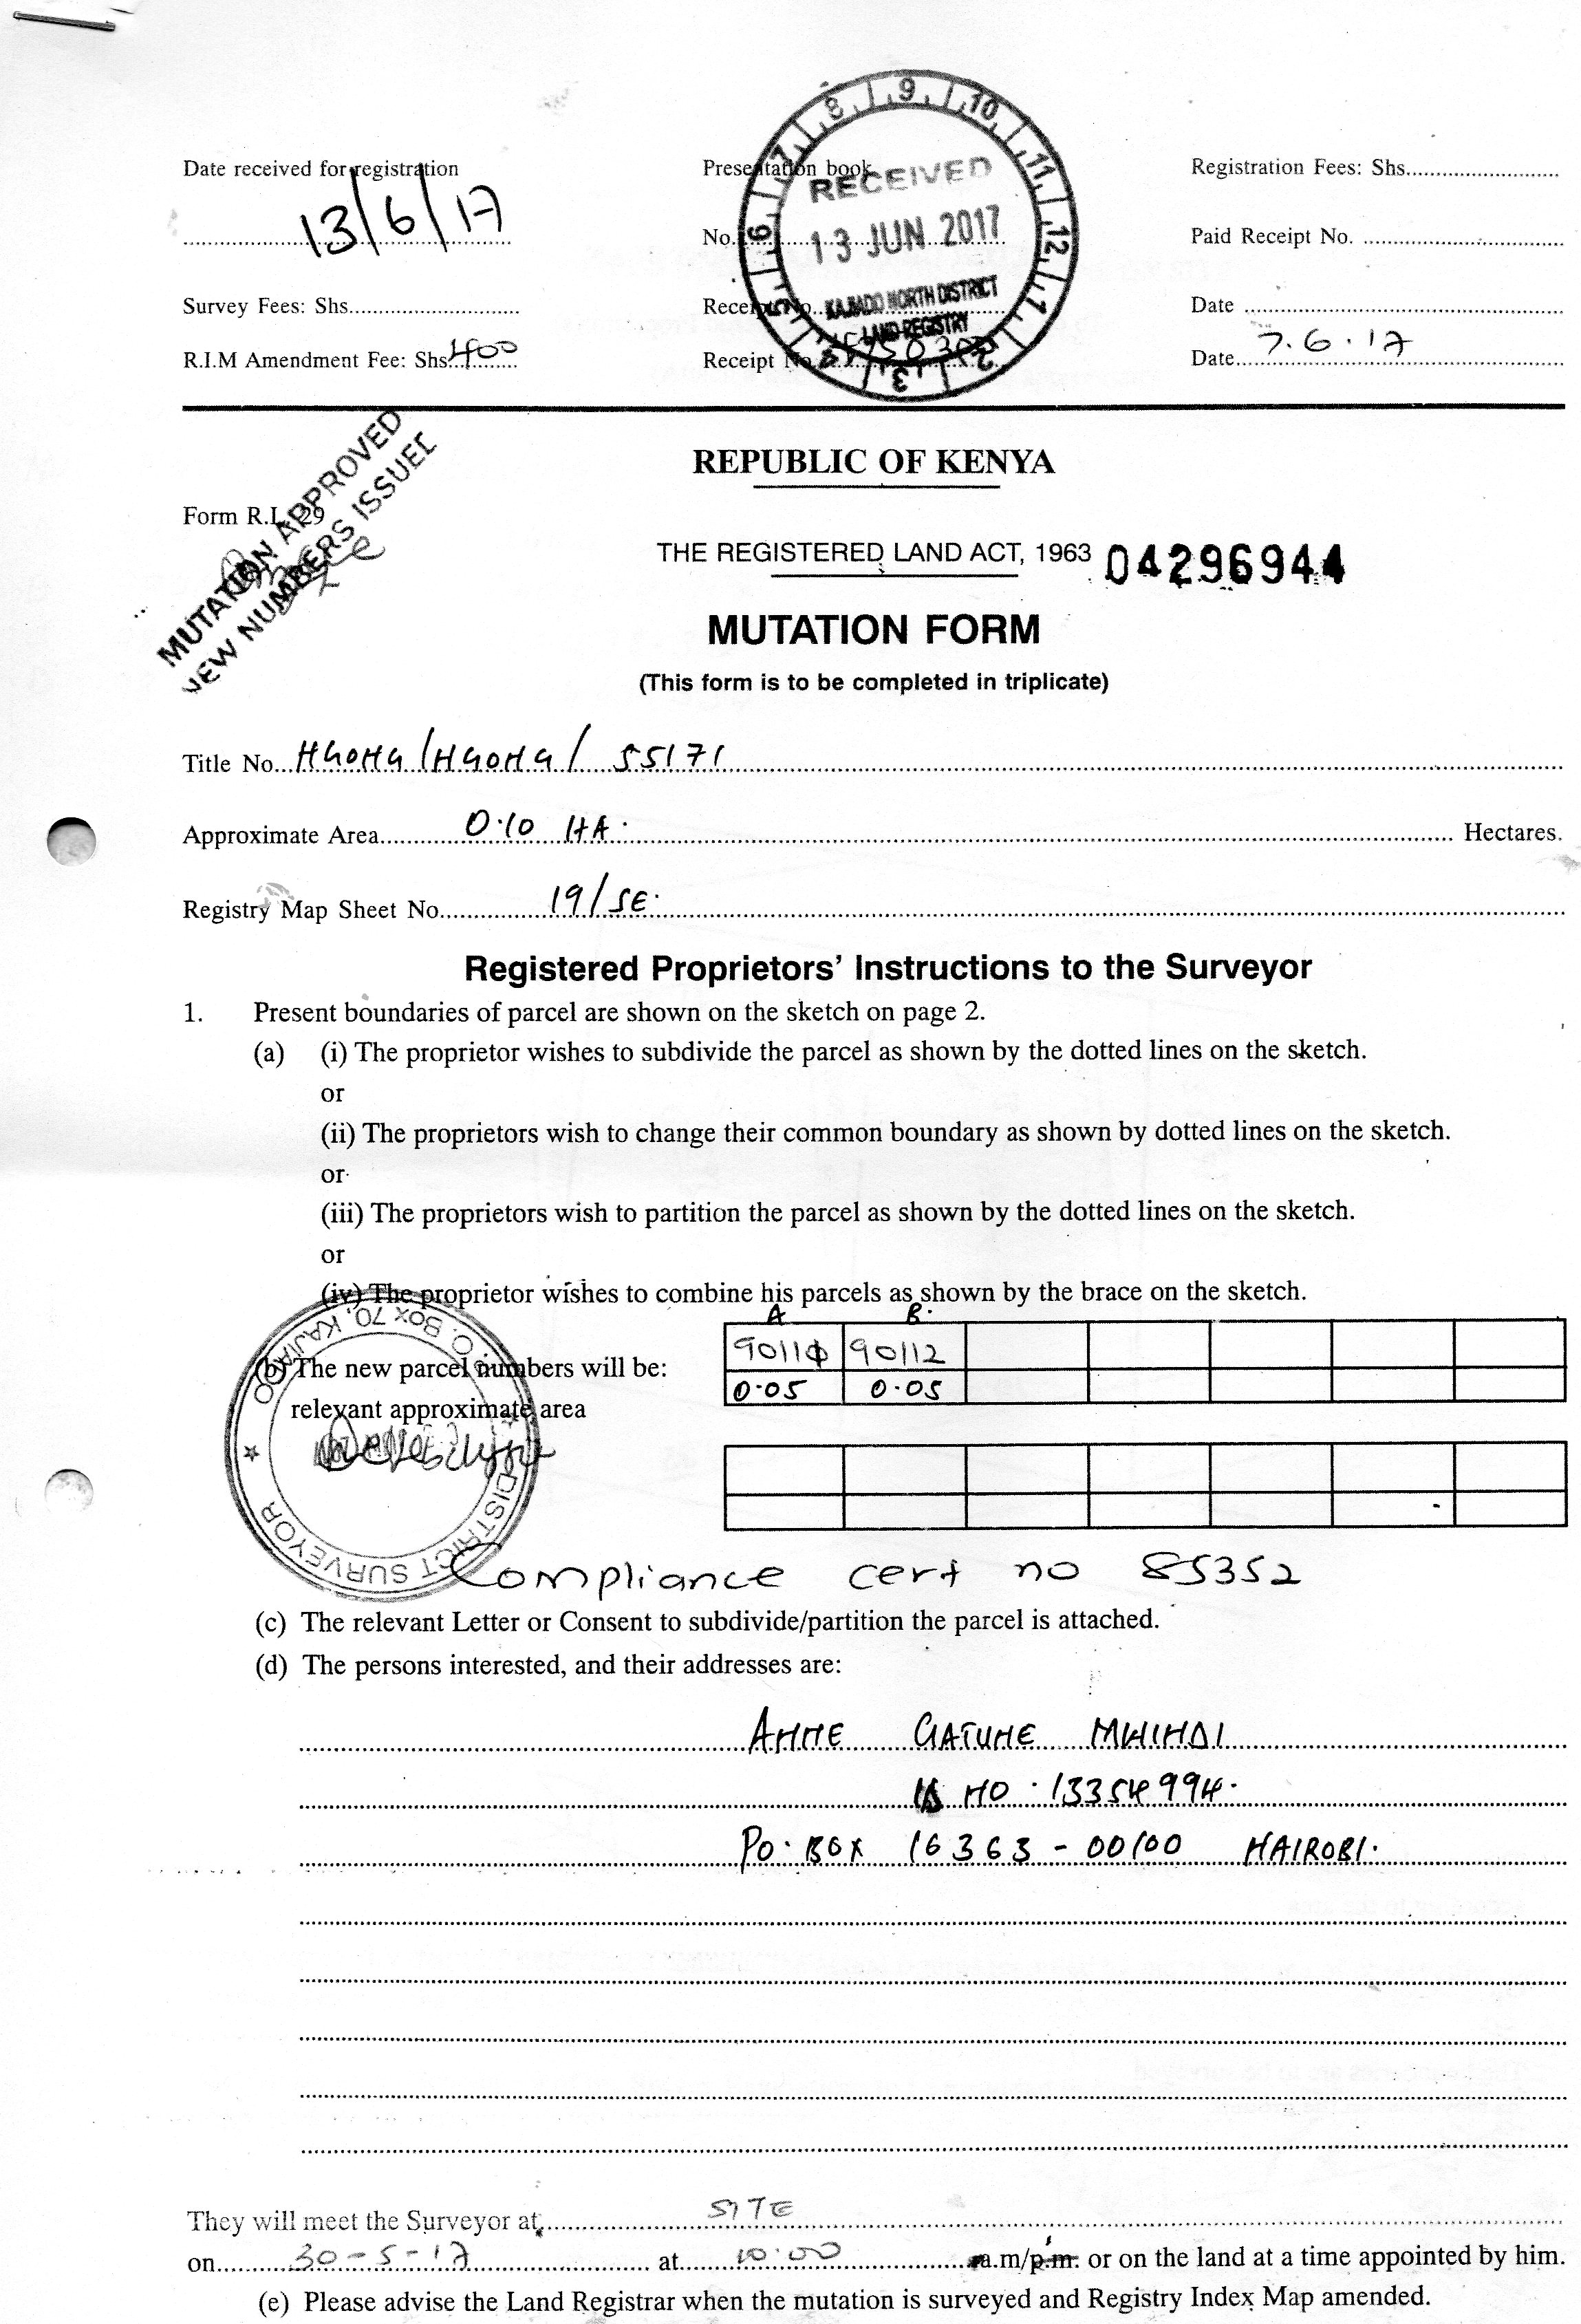 Date received for registration
13/6/17
Presentation book
No.
Registration Fees: Shs.
Paid Receipt No.
RECEIVED
13 JUN 2017
KAJIADO NORTH DISTRICT
LAND REGISTRY
6 7 8 9 10 11 12 1 2 3 4 5
Survey Fees: Shs.
Receipt No.
Date
R.I.M Amendment Fee: Shs. 400
Receipt No.
Date 7.6.17
MUTATION APPROVED
NEW NUMBERS ISSUED
REPUBLIC OF KENYA
Form R.L. 29
THE REGISTERED LAND ACT, 1963 04296944
MUTATION FORM
(This form is to be completed in triplicate)
Title No. NGONG/NGONG/ 55171
Approximate Area 0.10 HA. Hectares.
Registry Map Sheet No. 19/SE.
Registered Proprietors' Instructions to the Surveyor
1. Present boundaries of parcel are shown on the sketch on page 2.
(a) (i) The proprietor wishes to subdivide the parcel as shown by the dotted lines on the sketch.
or
(ii) The proprietors wish to change their common boundary as shown by dotted lines on the sketch.
or
(iii) The proprietors wish to partition the parcel as shown by the dotted lines on the sketch.
or
(iv) The proprietor wishes to combine his parcels as shown by the brace on the sketch.
A B.
(b) The new parcel numbers will be: 90111 90112
relevant approximate area 0.05 0.05
DISTRICT SURVEYOR
P.O. Box 70, KAJIADO
Compliance cert no 85352
(c) The relevant Letter or Consent to subdivide/partition the parcel is attached.
(d) The persons interested, and their addresses are:
ANNE GATUNE MWINDI
ID NO. 13354994.
PO. BOX 16363 - 00100 NAIROBI.
They will meet the Surveyor at SITE
on 30-5-17 at 10.00 a.m/p.m. or on the land at a time appointed by him.
(e) Please advise the Land Registrar when the mutation is surveyed and Registry Index Map amended.